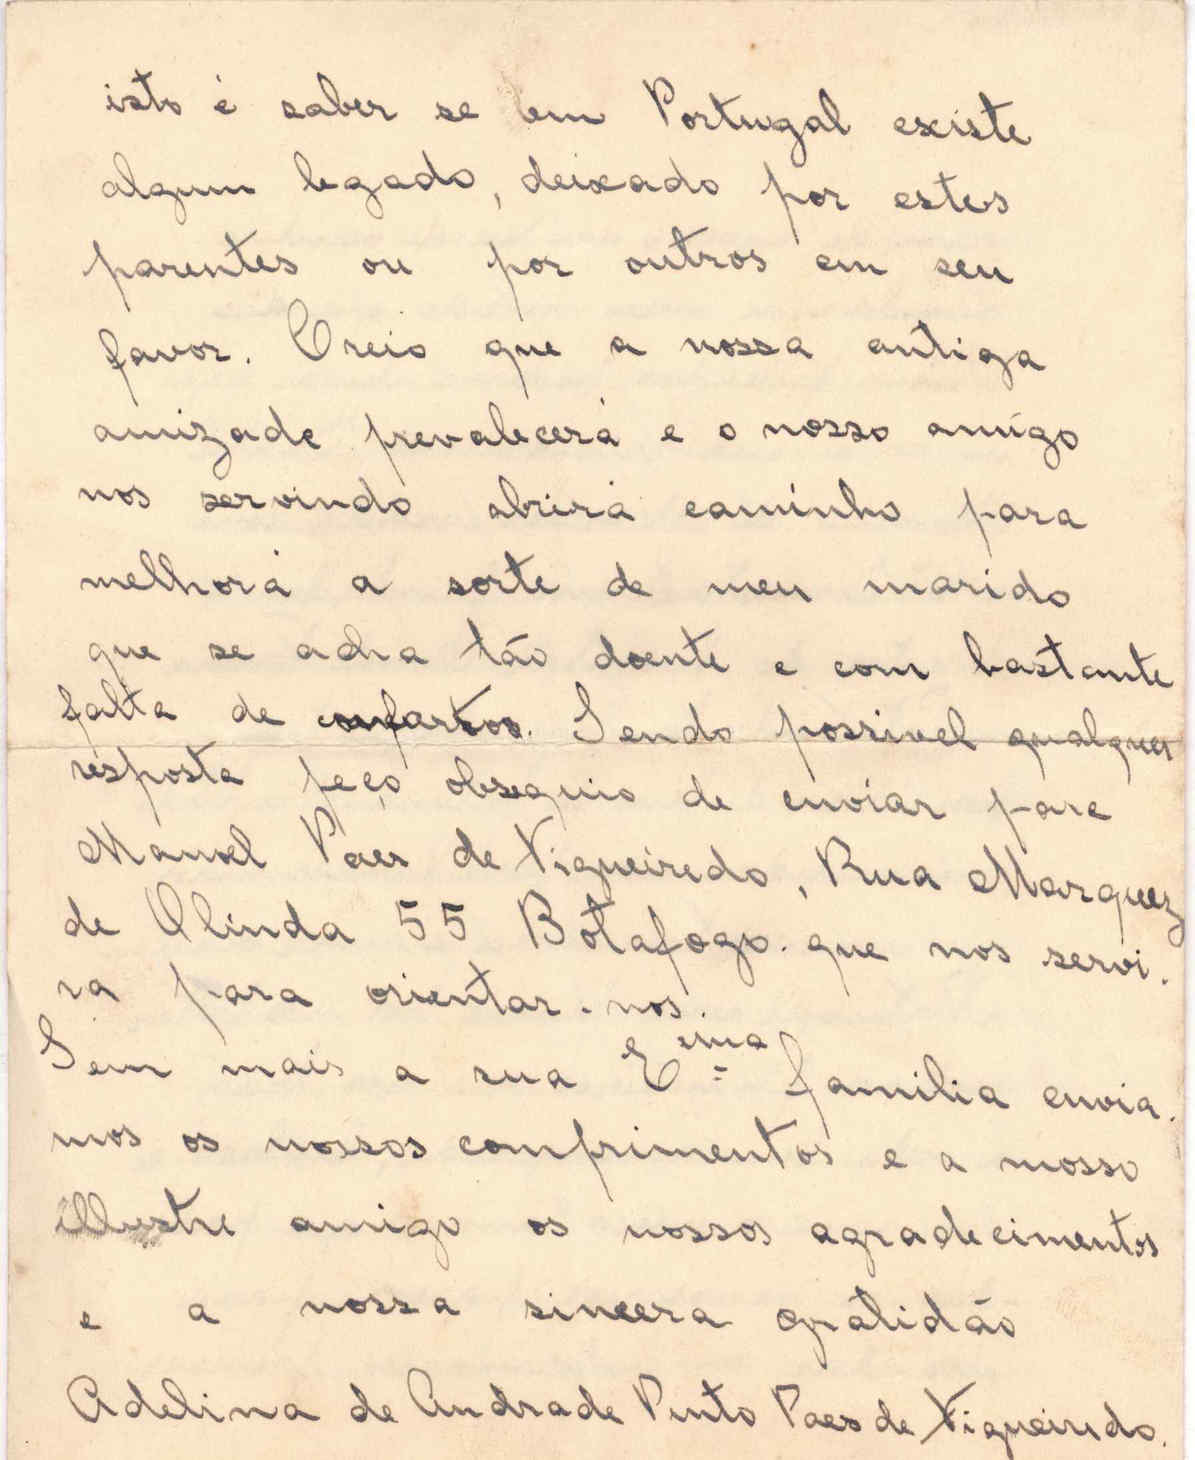 isto é saber se em Portugal existe
algum legado, deixado por estes
parentes ou por outros em seu
favor. Creio que a nossa antiga
amizade prevalecerá e o nosso amigo
nos servindo abrirá caminho para
melhorá a sorte de meu marido
que se acha tão doente e com bastante
falta de confortos. Sendo possivel qualquer
resposta peço obsequio de enviar para
Manoel Paes de Figueiredo, Rua Marquez
de Olinda 55 Botafogo. que nos servi.
ra para orientar-nos.
Sem mais a sua Exma familia envia.
mos os nossos comprimentos e a nosso
illustre amigo os nossos agradecimentos
e a nossa sincera gratidão
Adelina de Andrade Pinto Paes de Figueiredo.